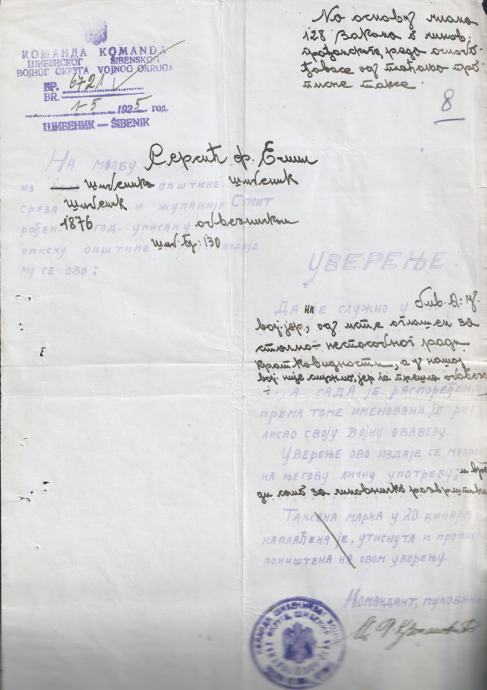 КОМАНДА KOMANDA
ШИБЕНСКОГ ŠIBENSKOG
ВОЈНОГ ОКРУГА VOJNOG OKRUGA
БР. 6721
BR.
1-5 1925 год.
ШИБЕНИК – ŠIBENIK
На основу члана
128 Закона о чинов.
грађанскога реда ослоб-
ђава се од плаћања
таксе.
8
НА МОЛБУ
ИЗ Шибеника ОПШТИНЕ Шибеник
СРЕЗА Шибеник И ЖУПАНИЈЕ СПЛИТ
РОЂЕН 1876 ГОД. УПИСАН У обвезнички
СПИСКУ ОПШТИНЕ Шиб. бр. 130 ИЗДАЈЕ
МУ СЕ ОВО:
УВЕРЕЊЕ
ДА НИЈЕ СЛУЖИО У бив. А-У.
војсци, од исте оглашен за
стално-неспособног ради
кратковидности, а у нашој
вој. није служио јер га
А САДА ЈЕ РАСПОРЕЂЕН
ПРЕМА ТОМЕ ИМЕНОВАНИ ЈЕ
СВОЈУ ВОЈНУ ОБАВЕЗУ.
УВЕРЕЊЕ ОВО ИЗДАЈЕ СЕ
НА ЊЕГОВУ ЛИЧНУ УПОТРЕБУ, и
само за чиновничко
ТАКСЕНА МАРКА У 20 ДИНАРА
НАПЛАЋЕНА ЈЕ, УТИСНУТА И
ПОНИШТЕНА НА ОВОМ УВЕРЕЊУ.
КОМАНДАНТ,